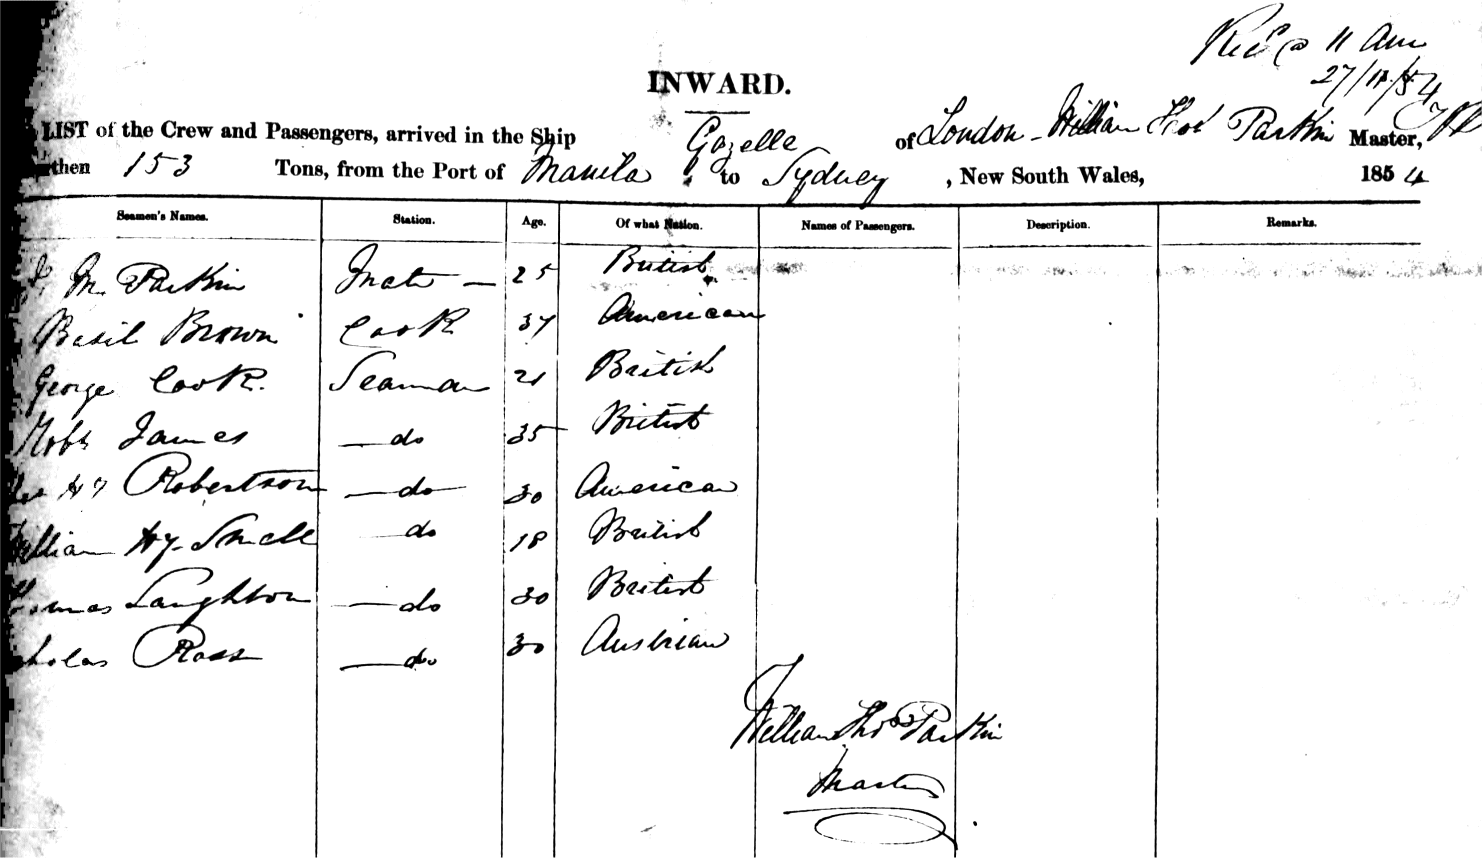 Recd @ 11 Am
27/11/54
INWARD.
LIST of the Crew and Passengers, arrived in the Ship Gazelle of London William Thos Parkin Master,
Burthen 153 Tons, from the Port of Manila to Sydney, New South Wales, 1854
Seamen's Names. Station. Age. Of what Nation. Names of Passengers. Description. Remarks.
M. Parkin Mate — 25 British
Basil Brown Cook 37 American
George Cook. Seaman 21 British
James — do 35 British
Hy Robertson — do 30 American
William Hy Snell — do 18 British
Thomas Laughton — do 30 British
Nicholas Ross — do 30 Austrian
William Thos Parkin
Master